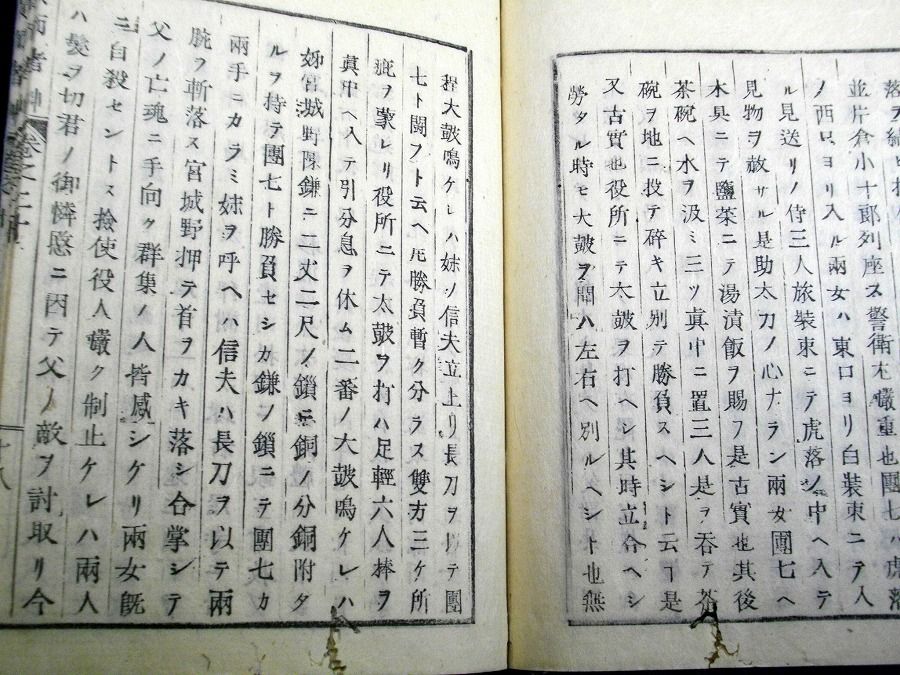 並片倉小十郎列座ス警衛尤嚴重也團七ハ虎落
ノ西口ヨリ入ル兩女ハ東口ヨリ白裝束ニテ入
ル見送リノ侍三人旅裝束ニテ虎落ノ中ヘ入テ
見物ヲ赦サル是助太刀ノ心ナラン兩女團七ヘ
木具ニテ鹽菜ニテ湯漬飯ヲ賜フ是古實也其後
茶碗ヘ水ヲ汲ミ三ツ眞中ニ置三人是ヲ呑テ茶
碗ヲ地ニ投テ碎キ立別テ勝負スヘシト云ヿ是
又古實也役所ニテ太皷ヲ打ヘシ其時立合ヘシ
勞タル時モ大皷ヲ聞ハ左右ヘ別ルヘシト也無
程大皷鳴ケレハ妹ノ信夫立上リ長刀ヲ以テ團
七ト鬪フト云ヘ𪜈勝負暫ク分ラス雙方三ケ所
疵ヲ蒙レリ役所ニテ太皷ヲ打ハ足輕六人棒ヲ
眞中ヘ入テ引分息ヲ休ム二番ノ大皷鳴ケレハ
姊宮城野陳鎌ニ二丈二尺ノ鎖ニ銅ノ分銅附タ
ルヲ持テ團七ト勝負セシカ鎌ノ鎖ニテ團七カ
兩手ニカラミ妹ヲ呼ヘハ信夫ハ長刀ヲ以テ兩
腕ヲ斬落ス宮城野押テ首ヲカキ落シ合掌シテ
父ノ亡魂ニ手向ク群集ノ人皆感シケリ兩女旣
ニ自殺セントス撿使役人嚴ク制止ケレハ兩人
ハ髮ヲ切君ノ御憐愍ニ因テ父ノ敵ヲ討取リ今